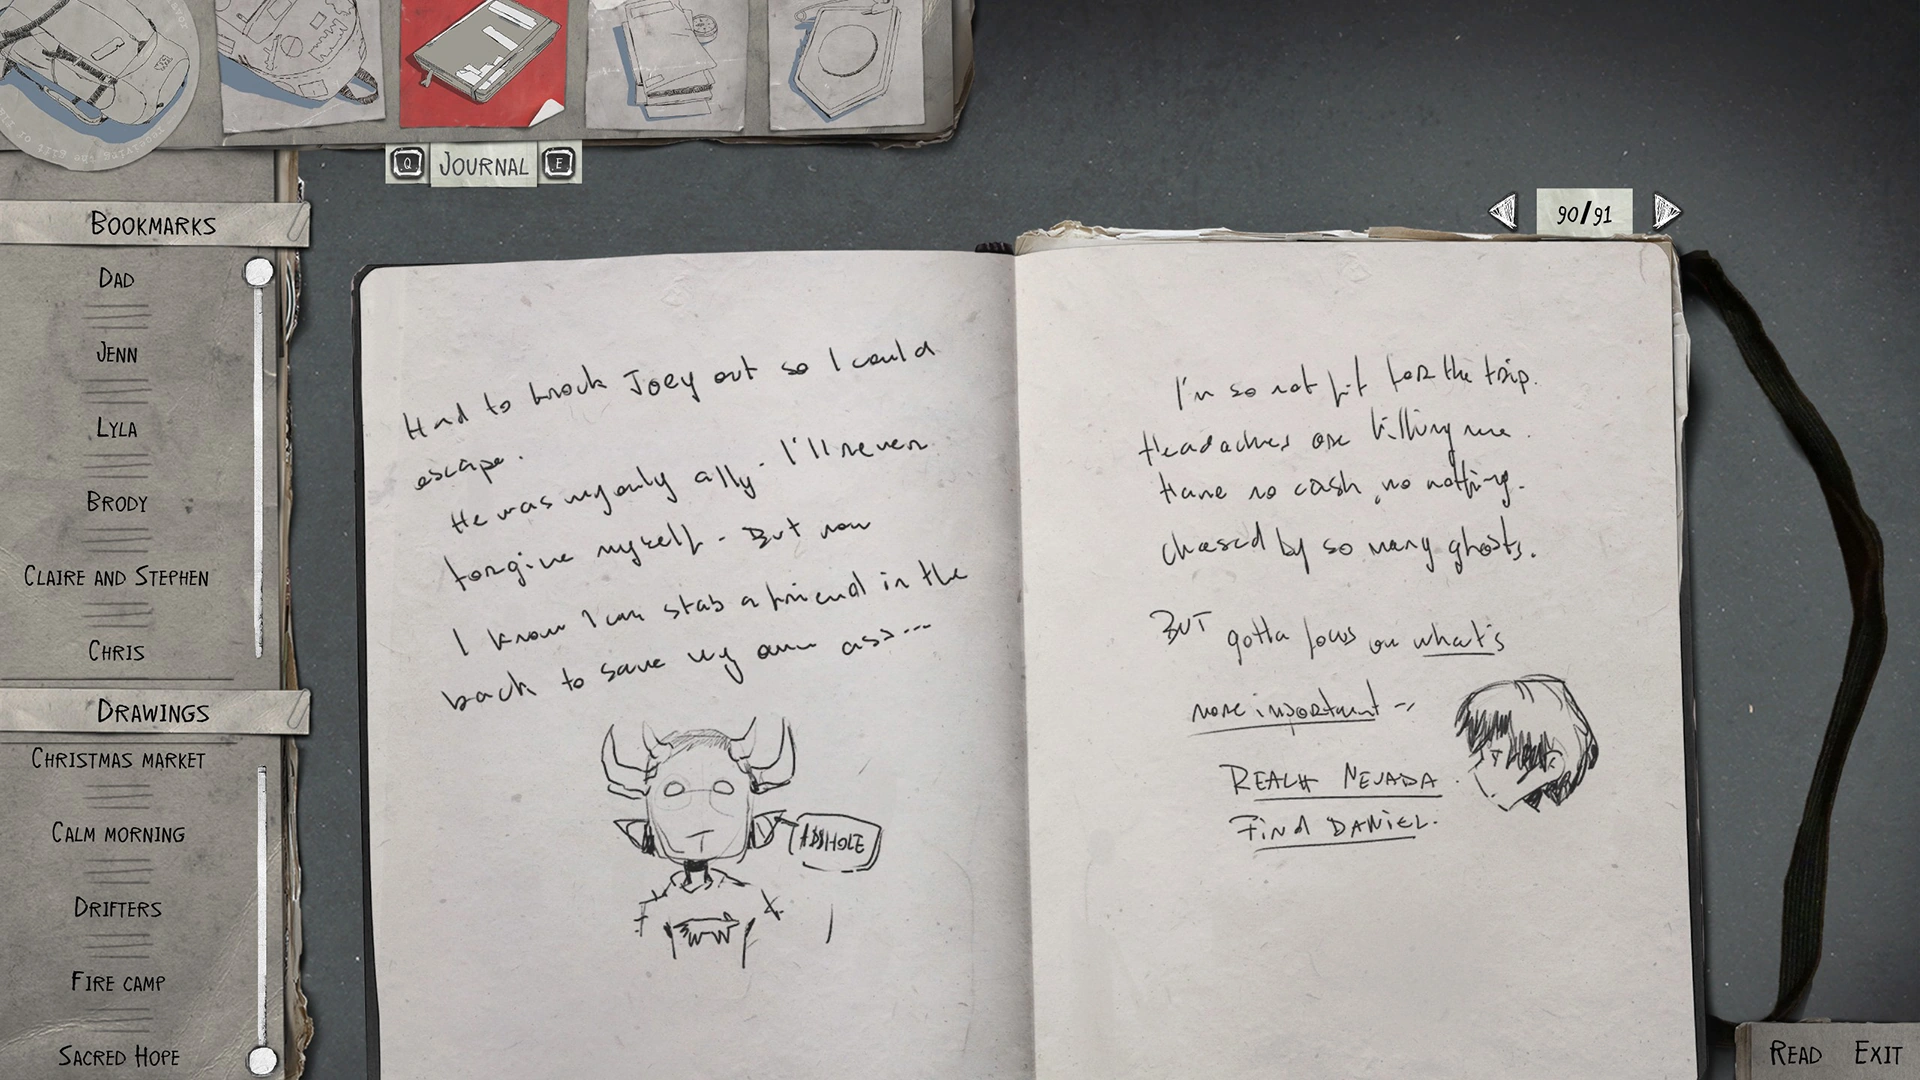 JOURNAL
Q
E
BOOKMARKS
DAD
JENN
LYLA
BRODY
CLAIRE AND STEPHEN
CHRIS
DRAWINGS
CHRISTMAS MARKET
CALM MORNING
DRIFTERS
FIRE CAMP
SACRED HOPE
90/91
Had to knock Joey out so I could
escape.
He was my only ally. I'll never
forgive myself. But now
I know I can stab a friend in the
back to save my own ass...
ASSHOLE
I'm so not fit for the trip.
Headaches are killing me.
Have no cash, no nothing.
chased by so many ghosts.
BUT gotta focus on what's
more important --
REACH NEVADA.
Find DANIEL.
READ
EXIT